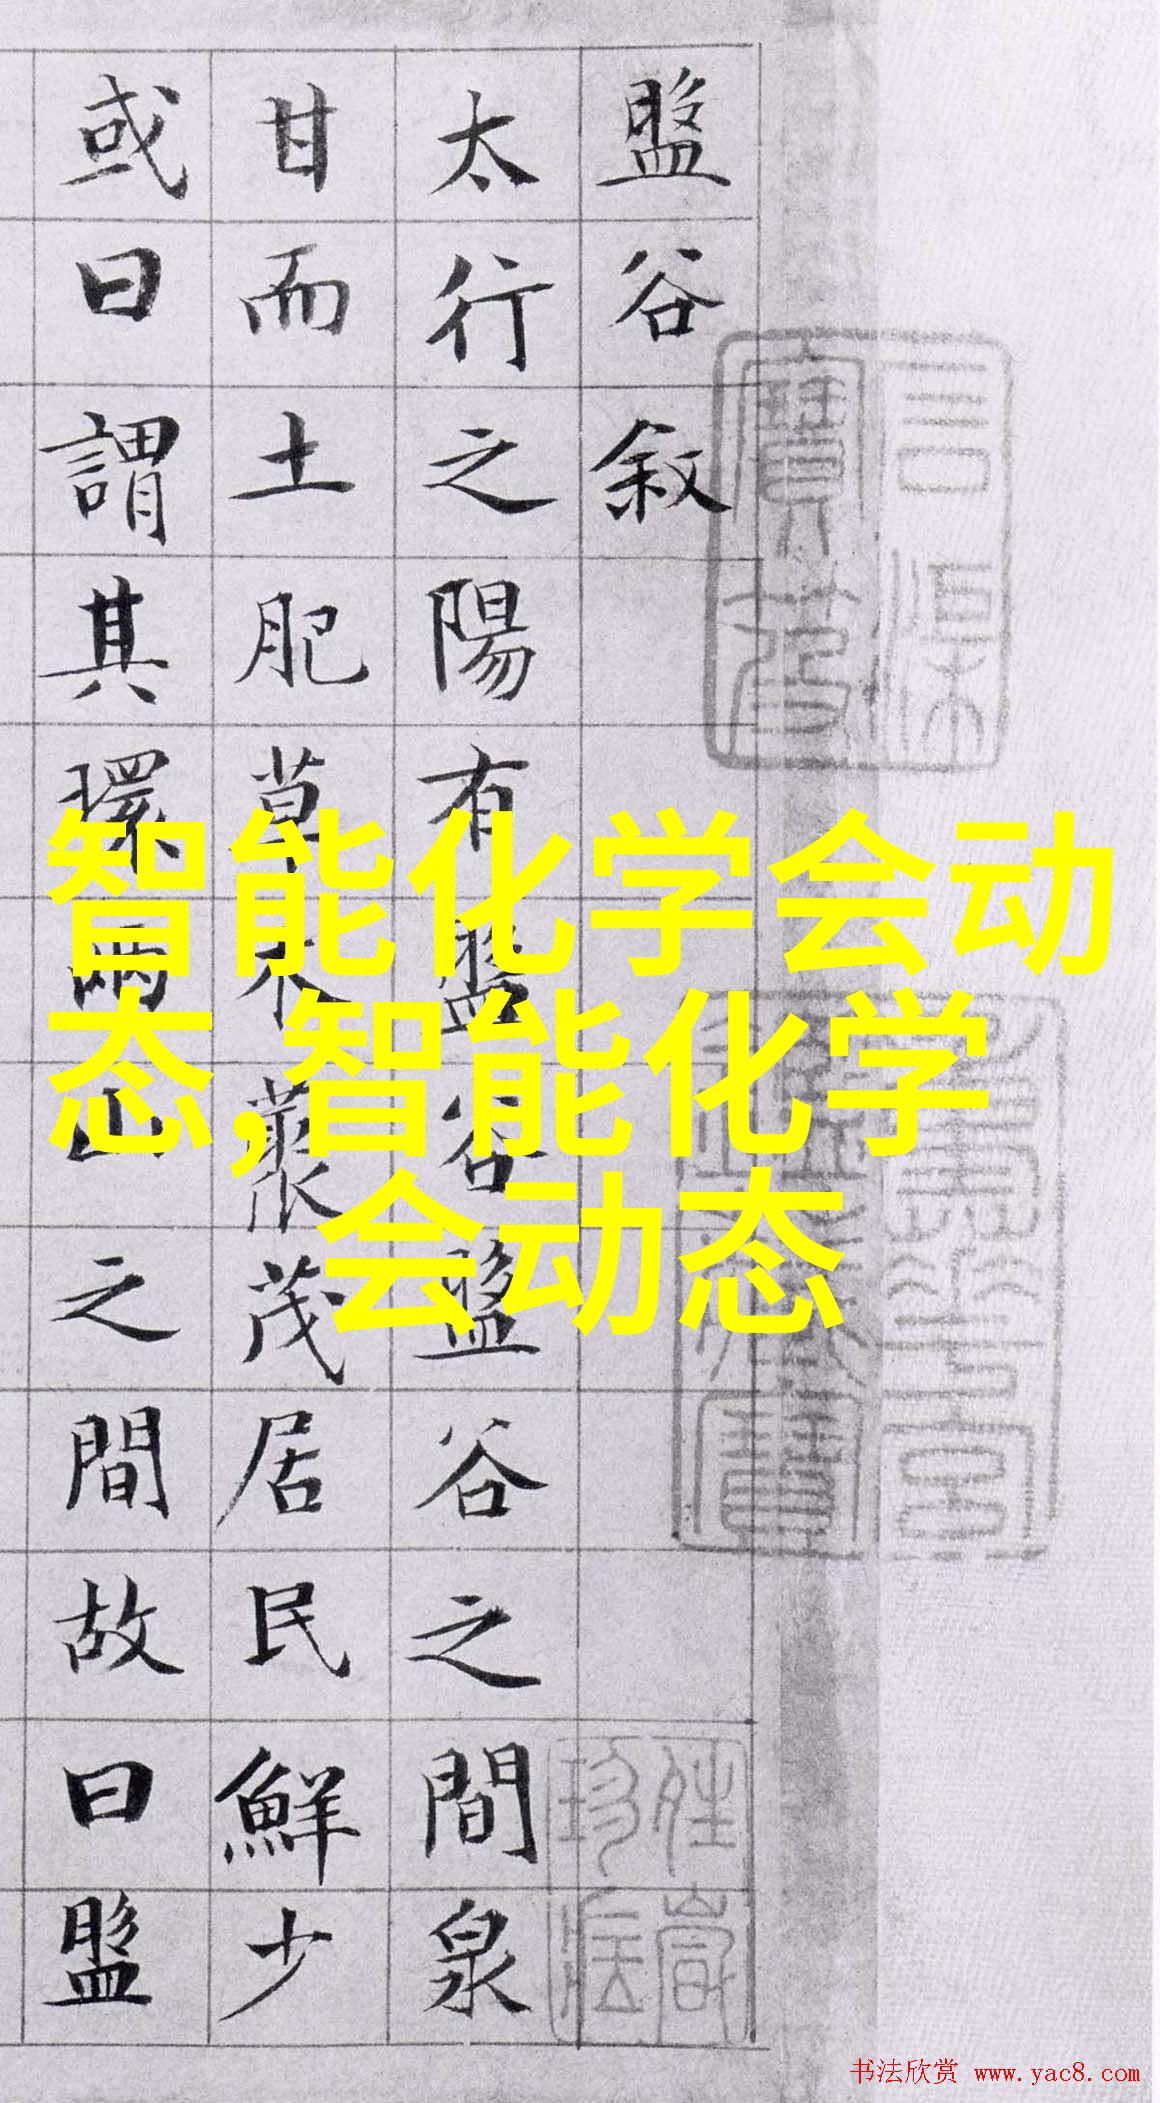 盤谷敘
太行之陽有盤谷盤谷之間泉
甘而土肥草木藂茂居民鮮少
或曰謂其環兩山之間故曰盤
智能化学会动
态,智能化学
会动态
书法欣赏 www.yac8.com